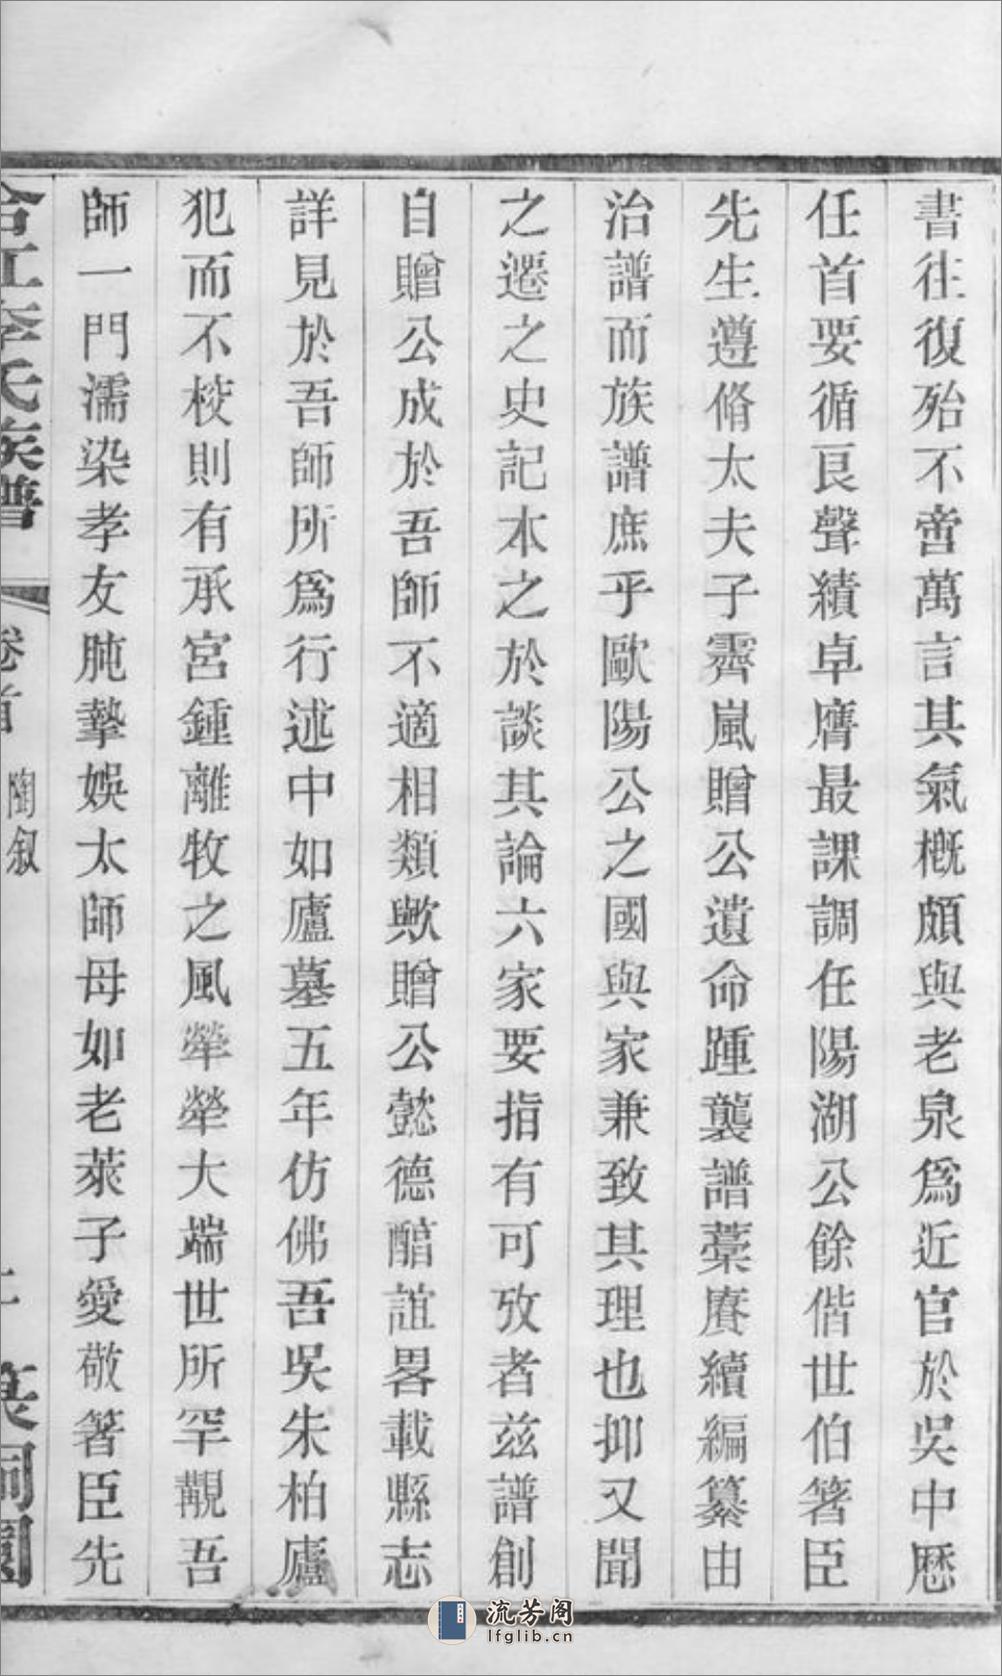 書往復殆不啻萬言其氣概頗與老泉爲近官於吳中歷
任首要循良聲績卓膺最課調任陽湖公餘偕世伯箸臣
先生遵脩太夫子霽嵐贈公遺命踵襲譜藁賡續編纂由
治譜而族譜庶乎歐陽公之國與家兼致其理也抑又聞
之遷之史記本之於談其論六家要指有可攷者兹譜創
自贈公成於吾師不適相類歟贈公懿德醕誼畧載縣志
詳見於吾師所爲行述中如廬墓五年仿佛吾吳朱柏廬
犯而不校則有承宮鍾離牧之風犖犖大端世所罕覯吾
師一門濡染孝友肫摯娛太師母如老萊子愛敬箸臣先
合江李氏族譜
卷首
陶叙
流芳阁
lfglib.cn